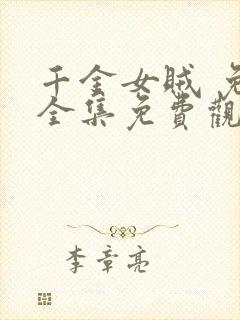 千金女賊 免
全集免費觀
李章亮